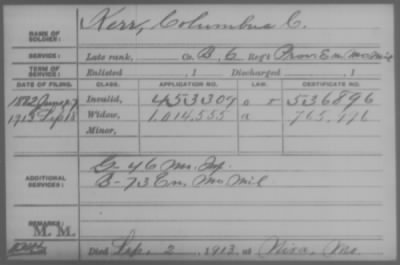 NAME OF SOLDIER: Kerr, Columbus C.
SERVICE: Late rank, Co. B, 6 Reg't Prov. En. Mo Mil
TERM OF SERVICE: Enlisted , 1 Discharged , 1
DATE OF FILING. CLASS. APPLICATION NO. LAW. CERTIFICATE NO.
Invalid, 453304 536896
1913 Sep 18 Widow, 1.014.555 a 765.
Minor,
ADDITIONAL SERVICES: G-46 Mo. Inf.
B-73 En. Mo Mil
REMARKS:
M. M.
Died Sep. 2, 1913, at Nixa, Mo.